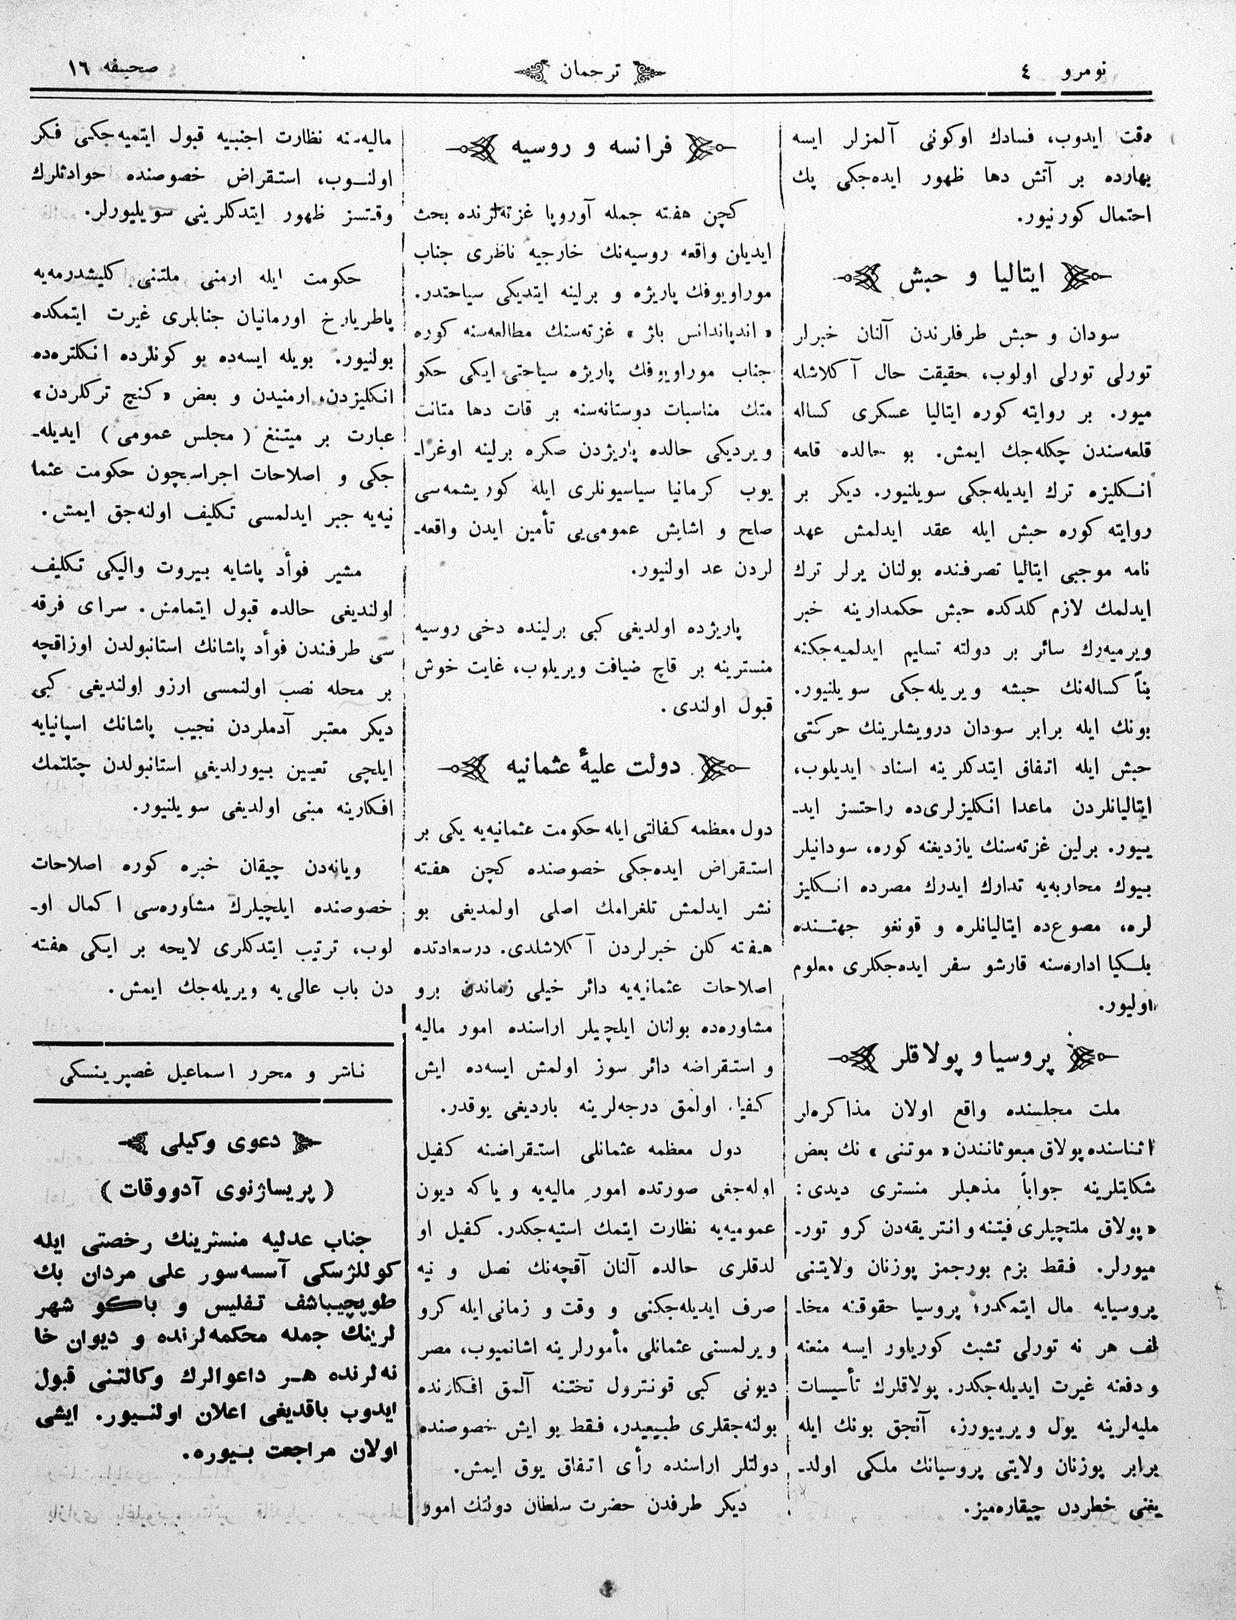 نومرو ٤
ترجمان
صحیفه ١٦
دقت ایدوب، فسادك اوكونی آلمزلر ایسه
بهارده بر آتش دها ظهور ایده‌جكی پك
احتمال كورنیور.
ایتالیا و حبش
سودان و حبش طرفلرندن آلنان خبرلر
تورلی تورلی اولوب، حقیقت حال آكلاشله
میور. بر روایته كوره ایتالیا عسكری كساله
قلعه‌سندن چكله‌جك ایمش. بو حالده قلعه
انكلیزه ترك ایدیله‌جكی سویلنیور. دیكر بر
روایته كوره حبش ایله عقد ایدلمش عهد
نامه موجبی ایتالیا تصرفنده بولنان یرلر ترك
ایدلمك لازم كلدكده حبش حكمدارینه خبر
ویرمیه‌رك سائر بر دولته تسلیم ایدلمیه‌جكنه
بناً كساله‌نك حبشه ویریله‌جكی سویلنیور.
بونك ایله برابر سودان درویشلرینك حركتی
حبش ایله اتفاق ایتدكلرینه اسناد ایدیلوب،
ایتالیانلردن ماعدا انكلیزلری‌ده راحتسز اید‌ـ
ییور. برلین غزته‌سنك یازدیغنه كوره، سودانیلر
بیوك محاربه‌یه تدارك ایدرك مصرده انكلیز
لره، مصوع‌ده ایتالیانلره و قونغو جهتنده
بلكیا اداره‌سنه قارشو سفر ایده‌جكلری معلوم
اولیور.
پروسیا و پولاقلر
ملت مجلسنده واقع اولان مذاكره‌لر
اثناسنده پولاق مبعوثانندن «موتنی» نك بعض
شكایتلرینه جواباً مذهبلر منستری دیدی:
«پولاق ملتچیلری فیتنه و انتریقه‌دن كرو تور‌ـ
میورلر. فقط بزم بورجمز پوزنان ولایتنی
پروسیایه مال ایتمكدر؛ پروسیا حقوقنه مخا‌ـ
لف هر نه تورلی تشبث كوریلور ایسه منعنه
و دفعنه غیرت ایدیله‌جكدر. پولاقلرك تأسیسات
ملیه‌لرینه یول ویرییورز، آنجق بونك ایله
برابر پوزنان ولایتی پروسیانك ملكی اولد‌ـ
یغنی خطردن چیقاره‌میز.
فرانسه و روسیه
كچن هفته جمله آوروپا غزته‌لرنده بحث
ایدیلن واقعه روسیه‌نك خارجیه ناظری جناب
موراویوفك پاریژه و برلینه ایتدیكی سیاحتدر.
«اندپاندانس بلژ» غزته‌سنك مطالعه‌سنه كوره
جناب موراویوفك پاریژه سیاحتی ایكی حكو
متك مناسبات دوستانه‌سنه بر قات دها متانت
ویردیكی حالده پاریژدن صكره برلینه اوغرا‌ـ
یوب كرمانیا سیاسیونلری ایله كوریشمه‌سی
صلح و اشایش عمومی‌یی تأمین ایدن واقعه‌ـ
لردن عد اولنیور.
پاریژده اولدیغی كبی برلینده دخی روسیه
منسترینه بر قاچ ضیافت ویریلوب، غایت خوش
قبول اولندی.
دولت علیۀ عثمانیه
دول معظمه كفالتی ایله حكومت عثمانیه‌یه یكی بر
استقراض ایده‌جكی خصوصنده كچن هفته
نشر ایدلمش تلغرامك اصلی اولمدیغی بو
هفته كلن خبرلردن آكلاشلدی. درسعادتده
اصلاحات عثمانیه‌یه دائر خیلی زماندن برو
مشاوره‌ده بولنان ایلچیلر اراسنده امور مالیه
و استقراضه دائر سوز اولمش ایسه‌ده ایش
كفیل اولمق درجه‌لرینه باردیغی یوقدر.
دول معظمه عثمانلی استقراضنه كفیل
اوله‌جغی صورتده امور مالیه‌یه و یاكه دیون
عمومیه‌یه نظارت ایتمك استیه‌جكدر. كفیل او
لدقلری حالده آلنان آقچه‌نك نصل و نیه
صرف ایدیله‌جكنی و وقت و زمانی ایله كرو
ویرلمسنی عثمانلی مأمورلرینه اشانمیوب، مصر
دیونی كبی قونترول تحتنه آلمق افكارنده
بولنه‌جقلری طبیعیدر، فقط بو ایش خصوصنده
دولتلر اراسنده رأی اتفاق یوق ایمش.
دیكر طرفدن حضرت سلطان دولتك امور
مالیه‌سنه نظارت اجنبیه قبول ایتمیه‌جكی فكر
اولنوب، استقراض خصوصنده حوادثلرك
وقتسز ظهور ایتدكلرینی سویلیورلر.
حكومت ایله ارمنی ملتنی كلیشدرمه‌یه
پاطریارخ اورمانیان جنابلری غیرت ایتمكده
بولنیور. بویله ایسه‌ده بو كونلرده انكلتره‌ده
انكلیزدن، ارمنیدن و بعض «كنچ تركلردن»
عبارت بر میتنغ (مجلس عمومی) ایدیله‌ـ
جكی و اصلاحات اجراسیچون حكومت عثما
نیه‌یه جبر ایدلمسی تكلیف اولنه‌جق ایمش.
مشیر فوأد پاشایه بیروت والیكی تكلیف
اولندیغی حالده قبول ایتمامش. سرای فرقه
سی طرفندن فوأد پاشانك استانبولدن اوزاقچه
بر محله نصب اولنمسی ارزو اولندیغی كبی
دیكر معتبر آدملردن نجیب پاشانك اسپانیایه
ایلچی تعیین بیورلدیغی استانبولدن چتلتمك
افكارینه مبنی اولدیغی سویلنیور.
ویانه‌دن چیقان خبره كوره اصلاحات
خصوصنده ایلچیلرك مشاوره‌سی اكمال او‌ـ
لوب، ترتیب ایتدكلری لایحه بر ایكی هفته
دن باب عالی‌یه ویریله‌جك ایمش.
ناشر و محرر اسماعیل غصپرینسكی
دعوی وكیلی
(پریساژنوی آدووقات)
جناب عدلیه منسترینك رخصتی ایله
كوللژسكی آسسه‌سور علی مردان بك
طوپچیباشف تفلیس و باكو شهر
لرینك جمله محكمه‌لرنده و دیوان خا
نه‌لرنده هر داعوالرك وكالتنی قبول
ایدوب باقدیغی اعلان اولنیور. ایشی
اولان مراجعت بیوره.